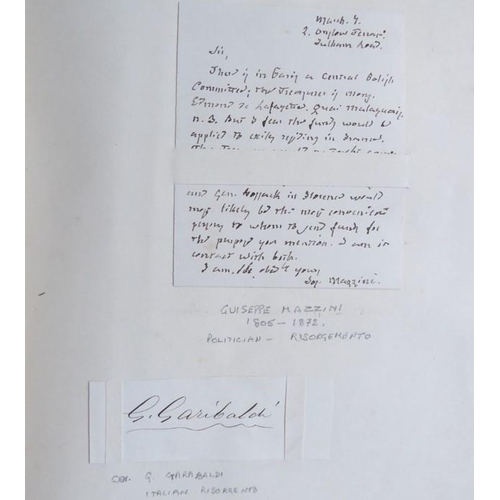 March 7.
2. Onslow Terrace
Fulham Road.
Sir,
There is in Paris a Central Polish
Committee; the Treasurer is Mons.
Edmond de Lafayette, Quai Malaquais,
n. 3. But I fear the funds would be
applied to exiles residing in France.
and Gen. in Florence would
most likely be the most convenient
persons to whom to send funds for
the purpose you mention. I am in
contact with both.
I am, Sir, obedt yours
Jos. Mazzini.
GUISEPPE MAZZINI
1805 - 1872.
POLITICIAN - RISORGEMENTO
G. Garibaldi
GEN. G GARABALDI
ITALIAN RISORGENTO